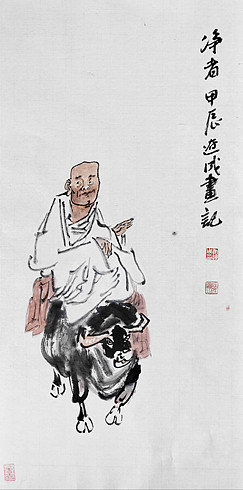 净者甲辰遊成畫記